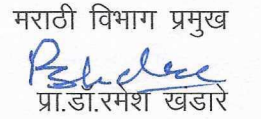 मराठी विभाग प्रमुख
प्रा.डॉ.रमेश खंडारे